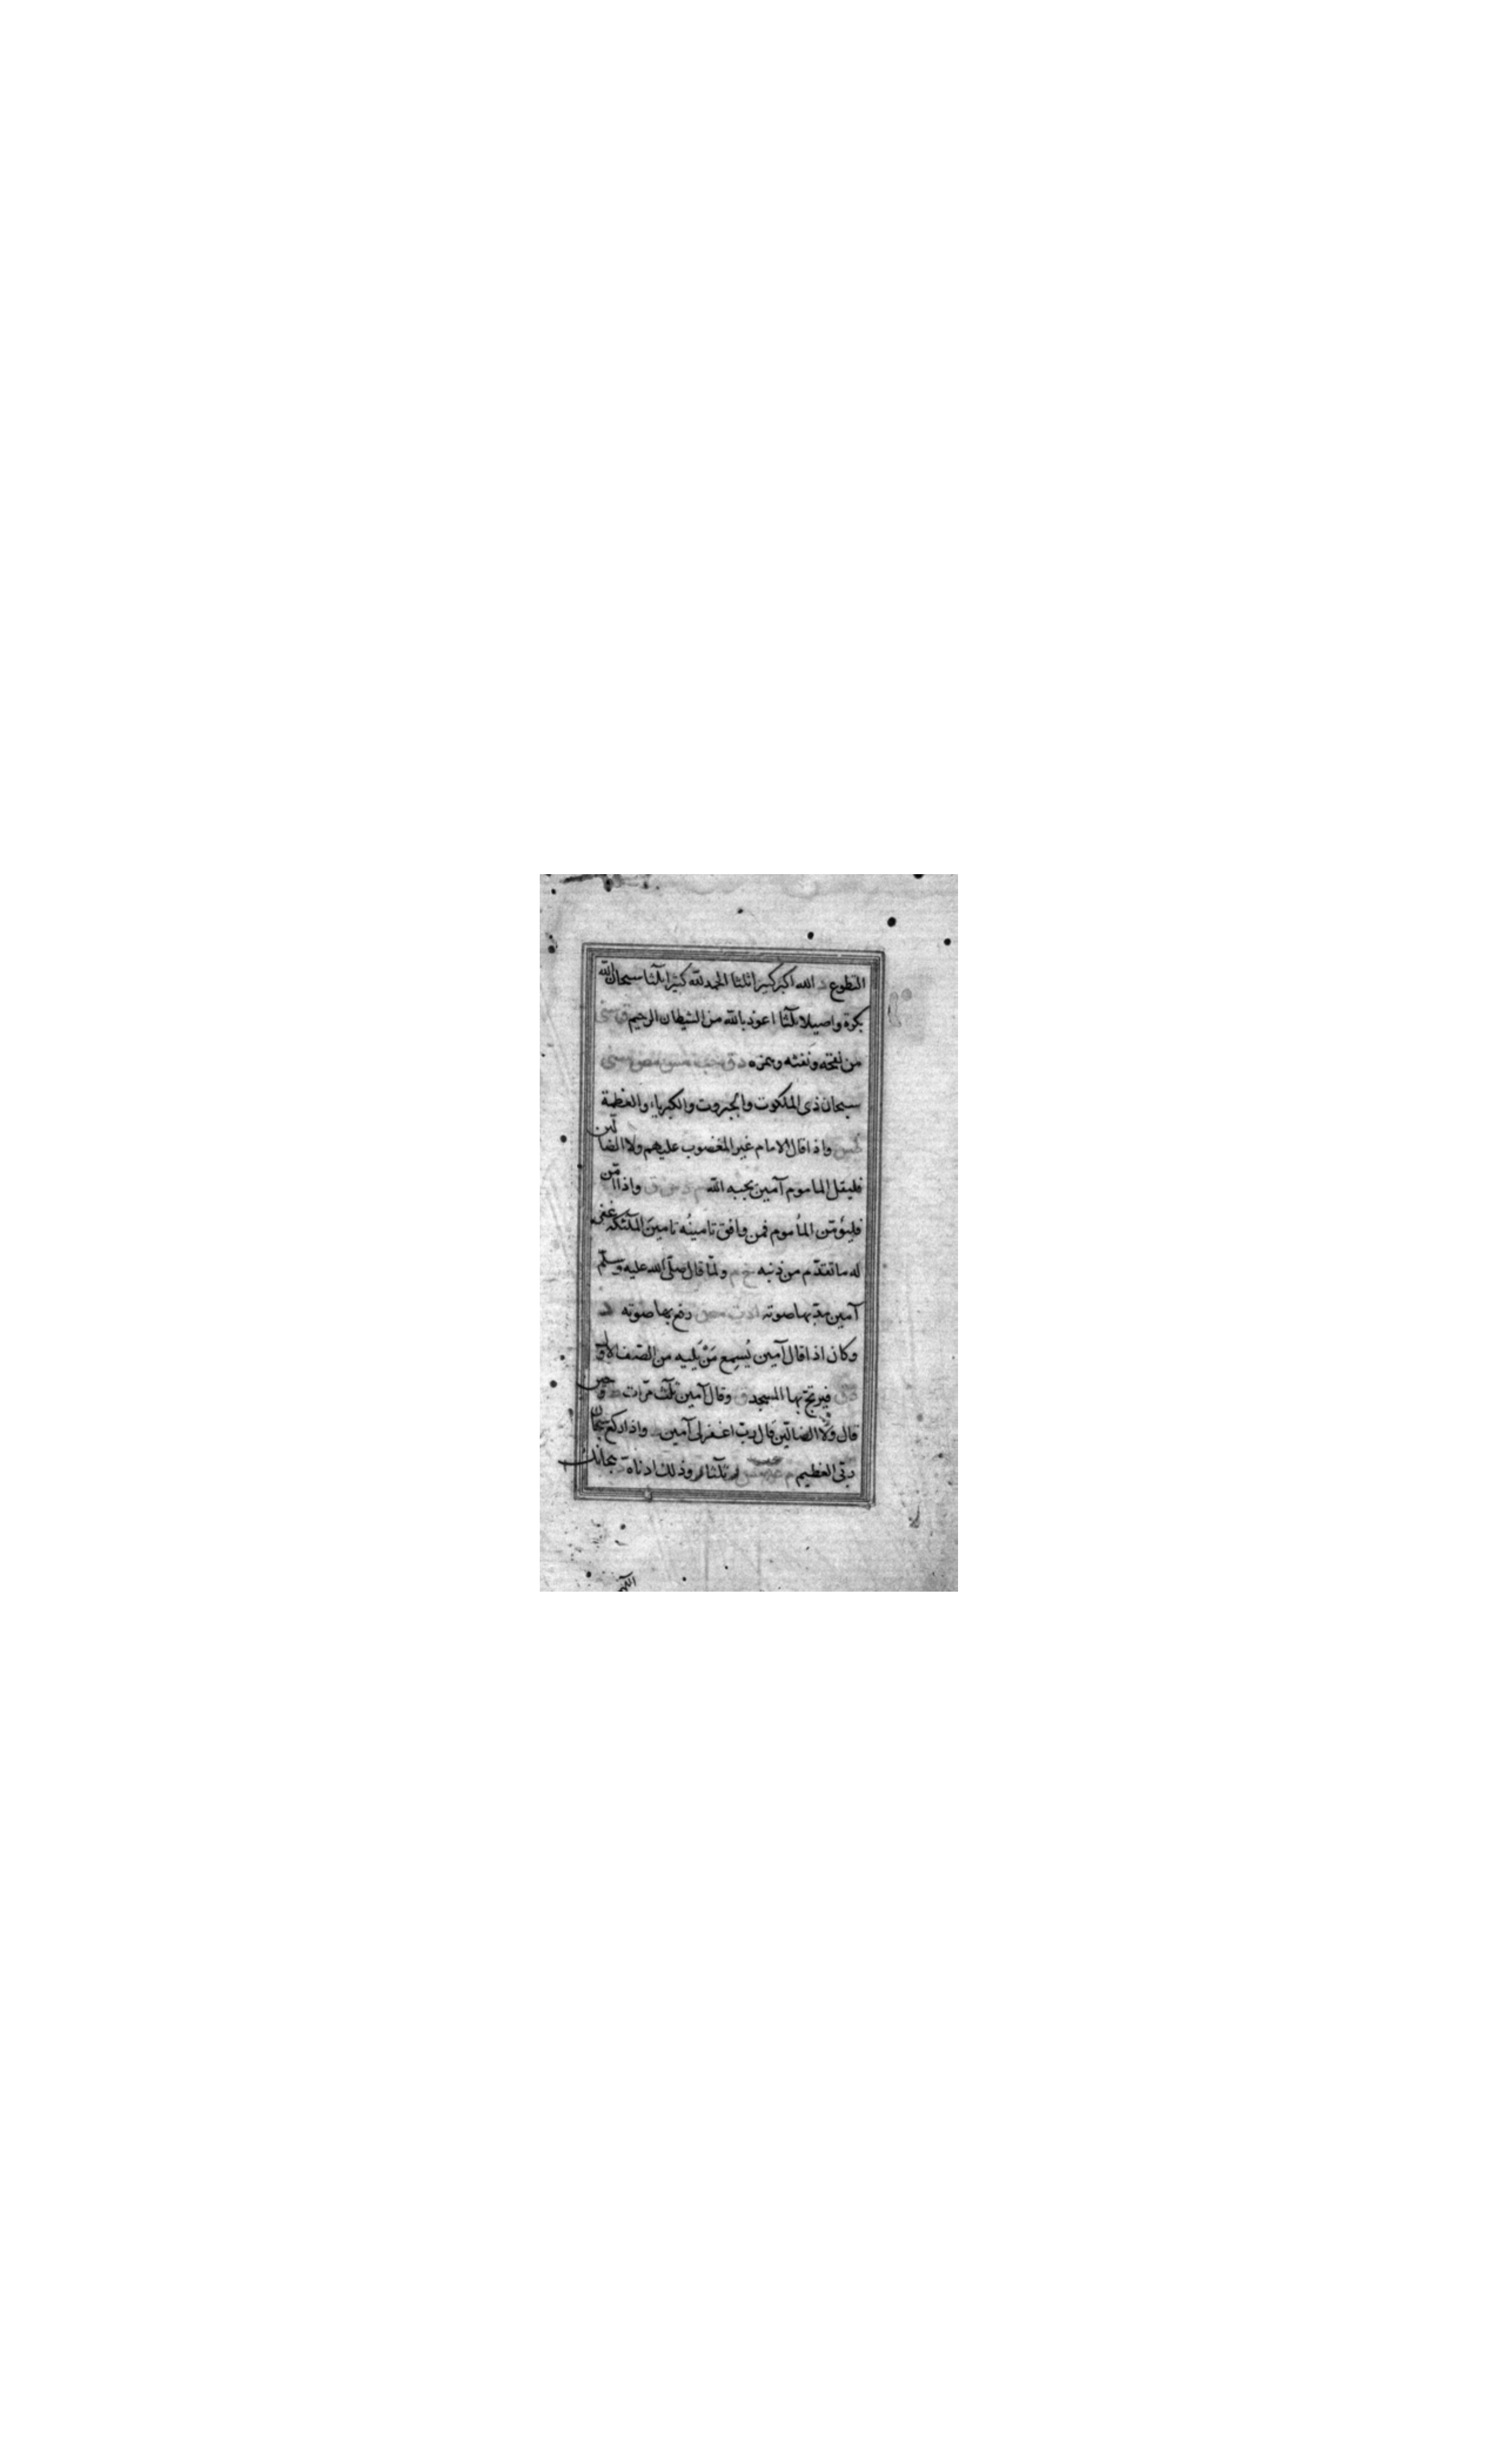 التطوع د الله اكبر كبيرا ثلثا الحمد لله كثيرا ثلثا سبحان الله
بكرة واصيلا ثلثا اعوذ بالله من الشيطان الرجيم ق سنى
من نفخه ونفثه وهمزه د ق
سبحان ذى الملكوت والجبروت والكبرياء والعظمة
طس واذا قال الامام غير المغضوب عليهم ولا الضالين
فليقل الماموم آمين يجبه الله م د س ق واذا امّن
فليؤمّن المأموم فمن وافق تامينُه تامينَ الملئكة غفر
له ما تقدّم من ذنبه خ م ولمّا قال صلّى الله عليه وسلّم
آمين مدّ بها صوته ا د ت مص رفع بها صوته د
وكان اذا قال آمين يُسمِع مَنْ يَليه من الصّف الاوّل
فيرتجّ بها المسجد ق وقال آمين ثلث مرّات ط وحين
قال ولا الضالّين قال ربّ اغفر لى آمين واذا ركع سبحان
ربّى العظيم م ثلثا ر وذلك ادناه د سبحانك
اللّهم